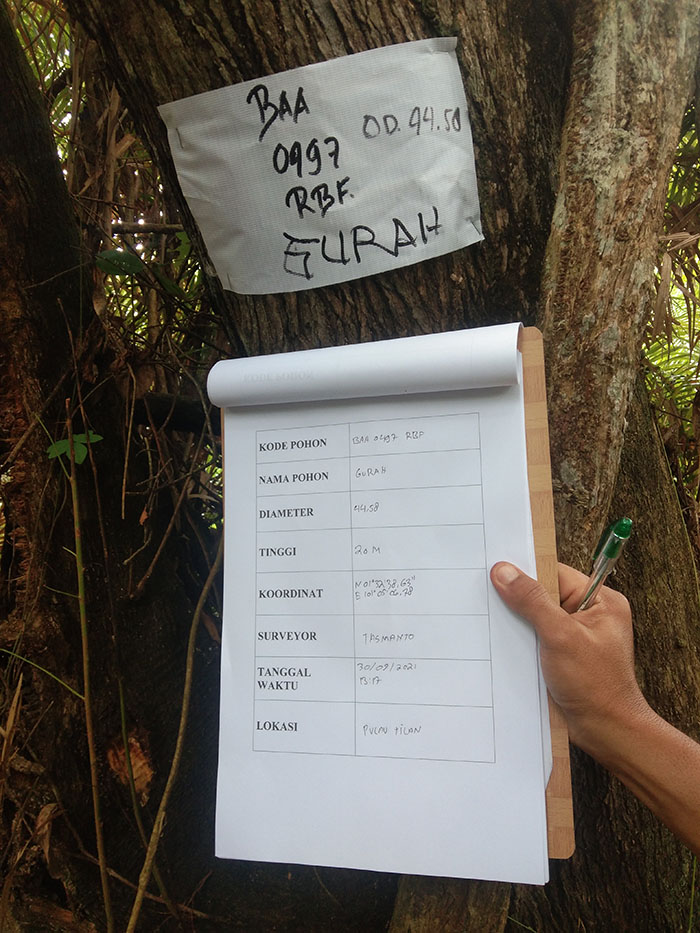 BAA
OD. 44.58
0497
RBF.
GURAH
KODE POHON BAA 0497 RBF
NAMA POHON GURAH
DIAMETER 44.58
TINGGI 20 M
KOORDINAT N 01°32'38,63"
E 101°05'06.78
SURVEYOR TASMANTO
TANGGAL 30/09/2021
WAKTU
LOKASI PULAU TILAN